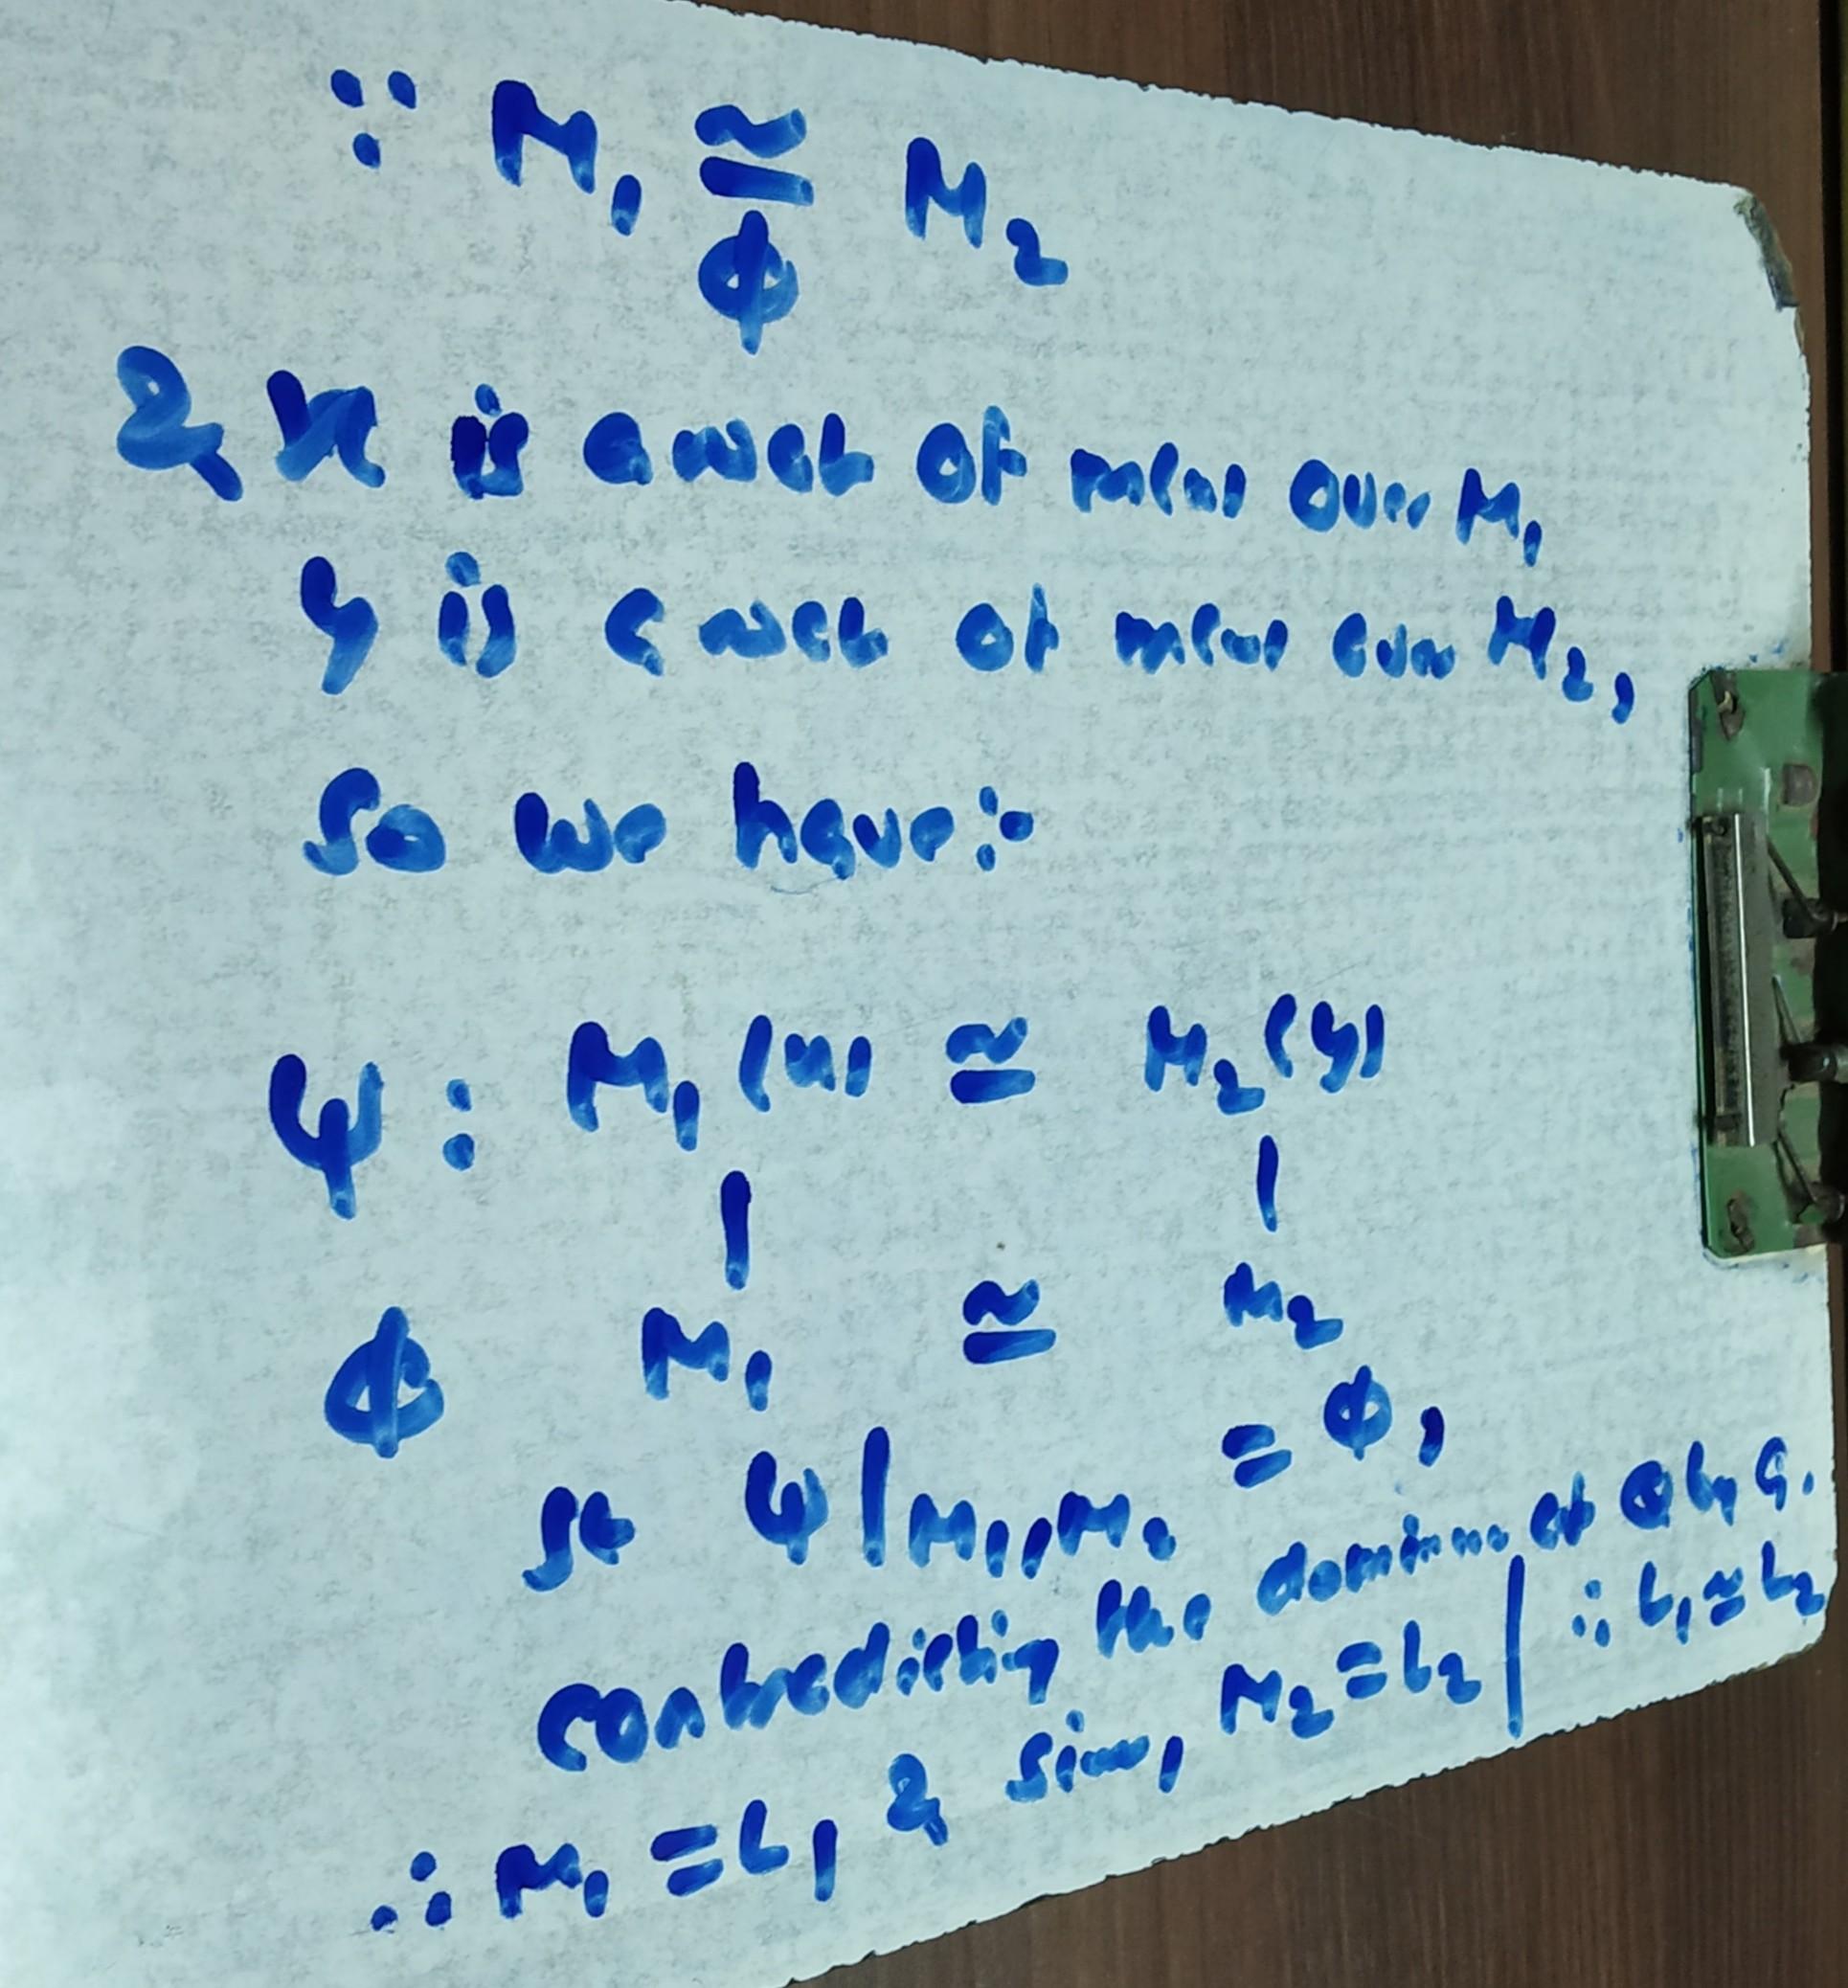 ∵ M₁ ≅ M₂
ϕ
& x is a root of m(x) over M₁
y is a root of m(x) over M₂,
So we have :-
ψ : M₁(x) ≅ M₂(y)
| |
ϕ M₁ ≅ M₂
st ψ|M₁,M₂ = ϕ,
contradicting the of by G.
∴ M₁ = L₁ & sim, M₂ = L₂ | ∴ L₁ ≅ L₂